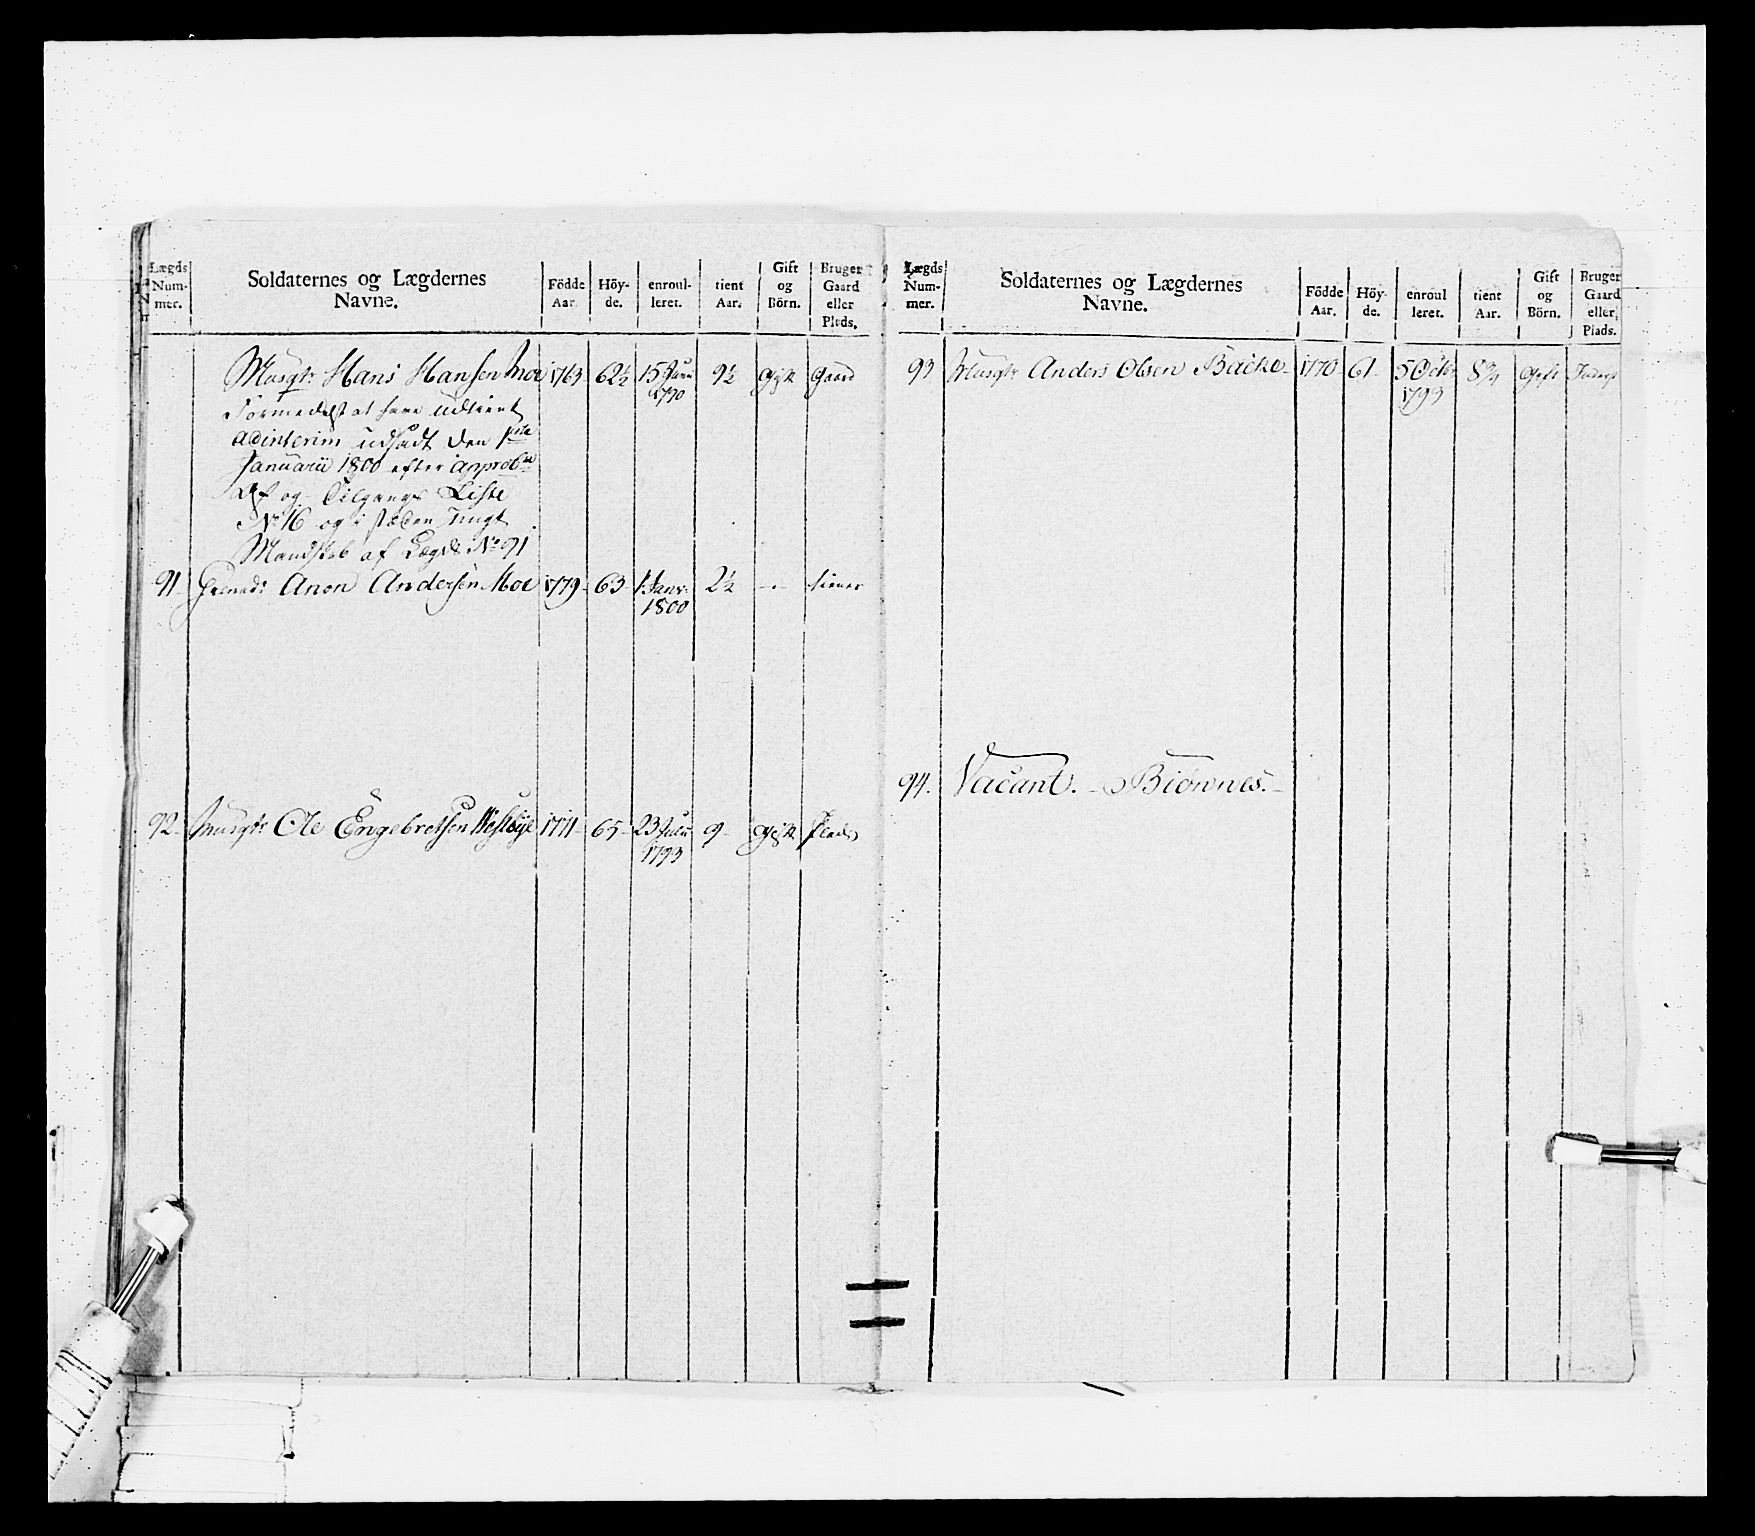 Lægds Num- mer. Soldaternes og Lægdernes Navne. Födde Aar. Höy- de. enroul- leret. tient Aar. Gift og Börn. Bruger Gaard eller Plads.
Musqt: Hans Hansen Moe 1763 62½ 15 Juni 1790 9½ gift Gaard
Formedelst at have udtient
adinterim udsadt den 1ste
Januarii 1800 efter approb:
Af og Tilgangs Liste
No. 16 og i stæden Ungt
Mandskab af Lægd No. 91
91 Grenad: Anon Andersen Moe 1779 63 1 Janv: 1800 2½ - tiener
92 Musqt: Ole Engebretsen 1771 65 23 1793 9 gift Plads
Lægds Num- mer. Soldaternes og Lægdernes Navne. Födde Aar. Höy- de. enroul leret. tient Aar. Gift og Börn. Bruger Gaard eller Plads.
93 Musqt: Anders Olsen Backe 1770 61 5 Octbr 1793 8¾ gift
94. Vacant. - Biørnnes. -